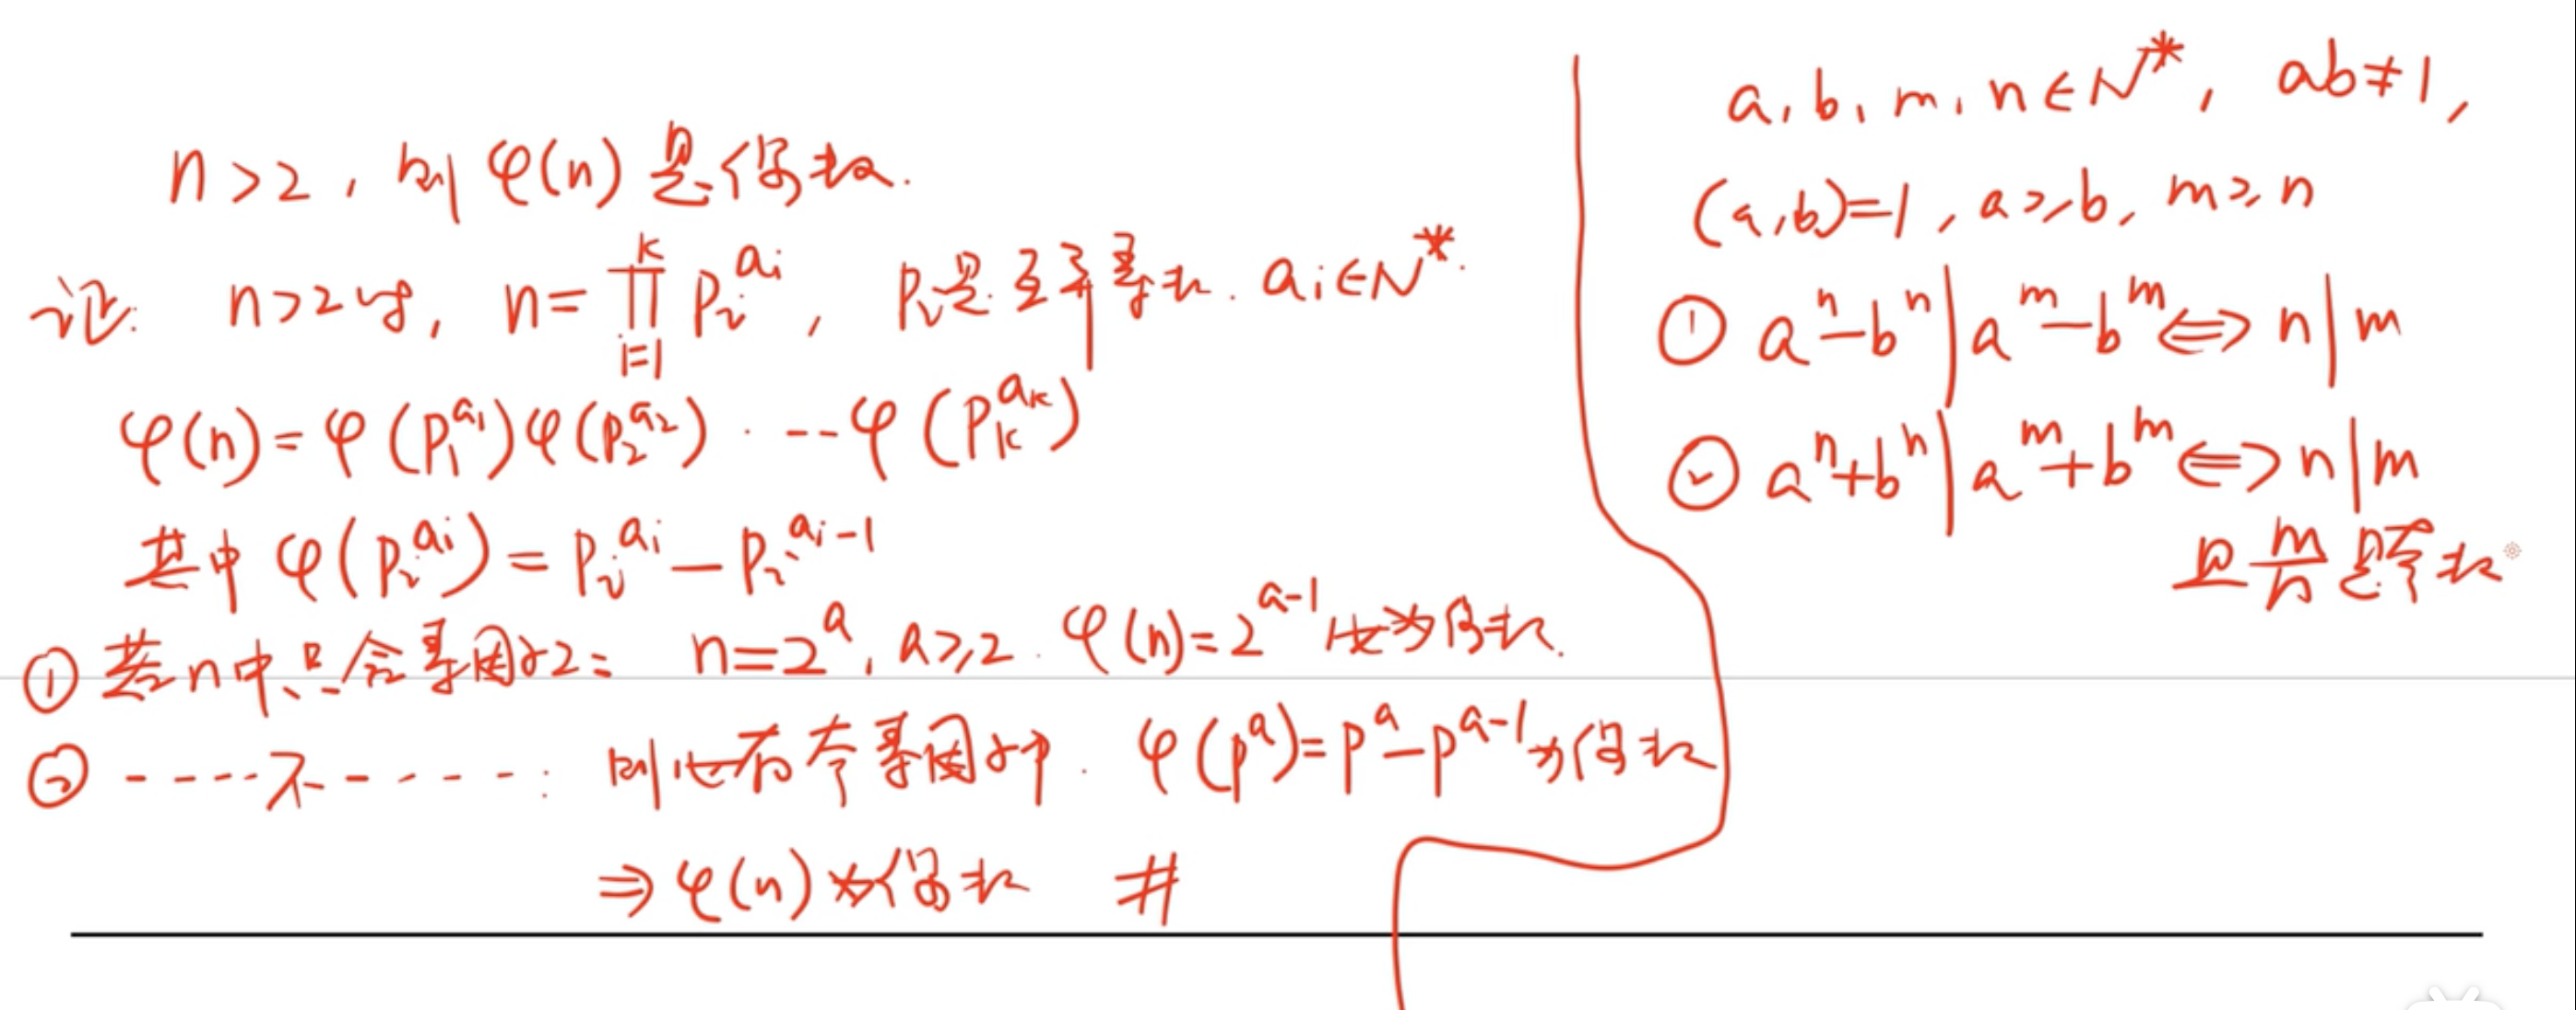 n>2, 则 φ(n) 是偶数.
证: n>2时, n=∏_{i=1}^{k} p_i^{a_i}, p_i是互异素数. a_i∈N*.
φ(n)=φ(p_1^{a_1})φ(p_2^{a_2})·--φ(p_k^{a_k})
其中 φ(p_i^{a_i})=p_i^{a_i}-p_i^{a_i-1}
① 若n中只含素因子2: n=2^a, a≥2. φ(n)=2^{a-1}必为偶数.
② ----不-----: 则必有奇素因子p. φ(p^a)=p^a-p^{a-1}为偶数
⇒φ(n)为偶数 #
a, b, m, n∈N*, ab≠1,
(a,b)=1, a≥b, m≥n
① a^n-b^n|a^m-b^m⇔n|m
② a^n+b^n|a^m+b^m⇔n|m
且m/n是奇数